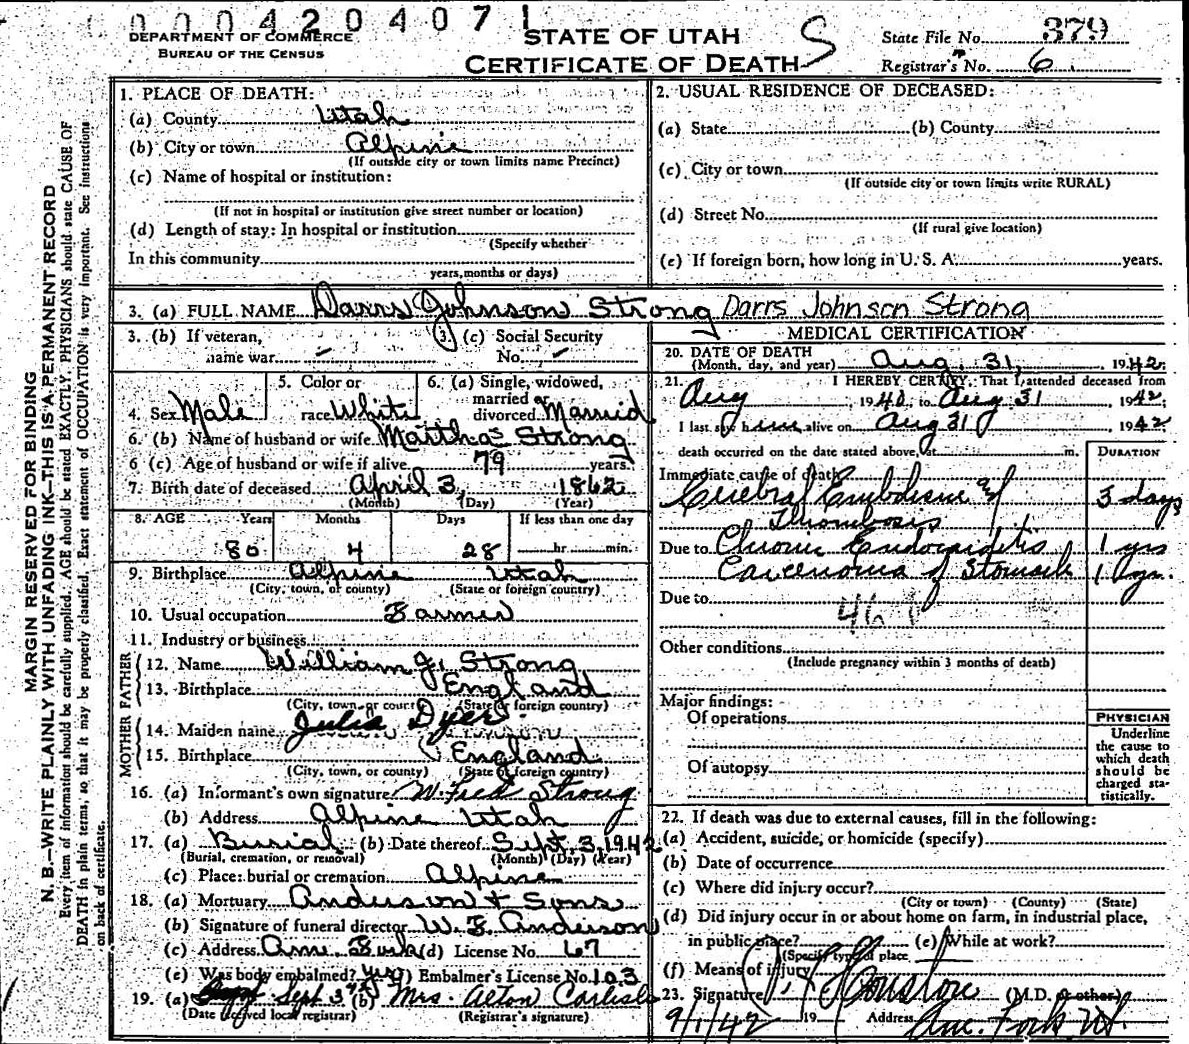 0 0 0 4 2 0 4 0 7 1
DEPARTMENT OF COMMERCE
BUREAU OF THE CENSUS
STATE OF UTAH
CERTIFICATE OF DEATH
S
State File No. 379
Registrar's No. 6
MARGIN RESERVED FOR BINDING
N. B.—WRITE PLAINLY WITH UNFADING INK—THIS IS A PERMANENT RECORD
Every item of information should be carefully supplied. AGE should be stated EXACTLY. PHYSICIANS should state CAUSE OF
DEATH in plain terms, so that it may be properly classified. Exact statement of OCCUPATION is very important. See instructions
on back of certificate.
1. PLACE OF DEATH:
(a) County Utah
(b) City or town Alpine
(If outside city or town limits name Precinct)
(c) Name of hospital or institution:
(If not in hospital or institution give street number or location)
(d) Length of stay: In hospital or institution
(Specify whether
In this community
years, months or days)
2. USUAL RESIDENCE OF DECEASED:
(a) State (b) County
(c) City or town
(If outside city or town limits write RURAL)
(d) Street No.
(If rural give location)
(e) If foreign born, how long in U. S. A. years.
3. (a) FULL NAME Darrs Johnson Strong Darrs Johnson Strong
3. (b) If veteran, 3. (c) Social Security
name war — No. —
5. Color or 6. (a) Single, widowed,
married or
4. Sex Male race White divorced Married
6. (b) Name of husband or wife Martha Strong
6 (c) Age of husband or wife if alive 79 years.
7. Birth date of deceased April 3, 1862
(Month) (Day) (Year)
8. AGE Years Months Days If less than one day
80 4 28 hr. min.
9. Birthplace Alpine Utah
(City, town, or county) (State or foreign country)
10. Usual occupation Farmer
11. Industry or business
FATHER
12. Name William J. Strong
13. Birthplace England
(City, town, or county) (State or foreign country)
MOTHER
14. Maiden name Julia Dyer
15. Birthplace England
(City, town, or county) (State or foreign country)
16. (a) Informant's own signature W. Fred Strong
(b) Address Alpine Utah
17. (a) Burial (b) Date thereof Sept. 3, 1942
(Burial, cremation, or removal) (Month) (Day) (Year)
(c) Place: burial or cremation Alpine
18. (a) Mortuary Anderson & Sons
(b) Signature of funeral director W. E. Anderson
(c) Address Am. Fork (d) License No. 67
(e) Was body embalmed? yes (f) Embalmer's License No. 103
19. (a) Sept 3 (b) Mrs. Alton Carlisle
(Date received local registrar) (Registrar's signature)
MEDICAL CERTIFICATION
20. DATE OF DEATH
(Month, day, and year) Aug. 31, 1942
21. I HEREBY CERTIFY, That I attended deceased from
Aug 1940 to Aug 31, 1942;
I last saw him alive on Aug 31, 1942
death occurred on the date stated above, at m. DURATION
Immediate cause of death
Cerebral Embolism & 3 days
Thrombosis
Due to Chronic Endocarditis 1 yrs
Carcenoma of Stomach 1 yr.
Due to
Other conditions
(Include pregnancy within 3 months of death)
Major findings:
Of operations
Of autopsy
PHYSICIAN
Underline
the cause to
which death
should be
charged sta-
tistically.
22. If death was due to external causes, fill in the following:
(a) Accident, suicide, or homicide (specify)
(b) Date of occurrence
(c) Where did injury occur?
(City or town) (County) (State)
(d) Did injury occur in or about home on farm, in industrial place,
in public place? (e) While at work?
(Specify type of place
(f) Means of injury
23. Signature Houston (M.D. or other)
9/1/42 19 Address Am. Fork Ut.